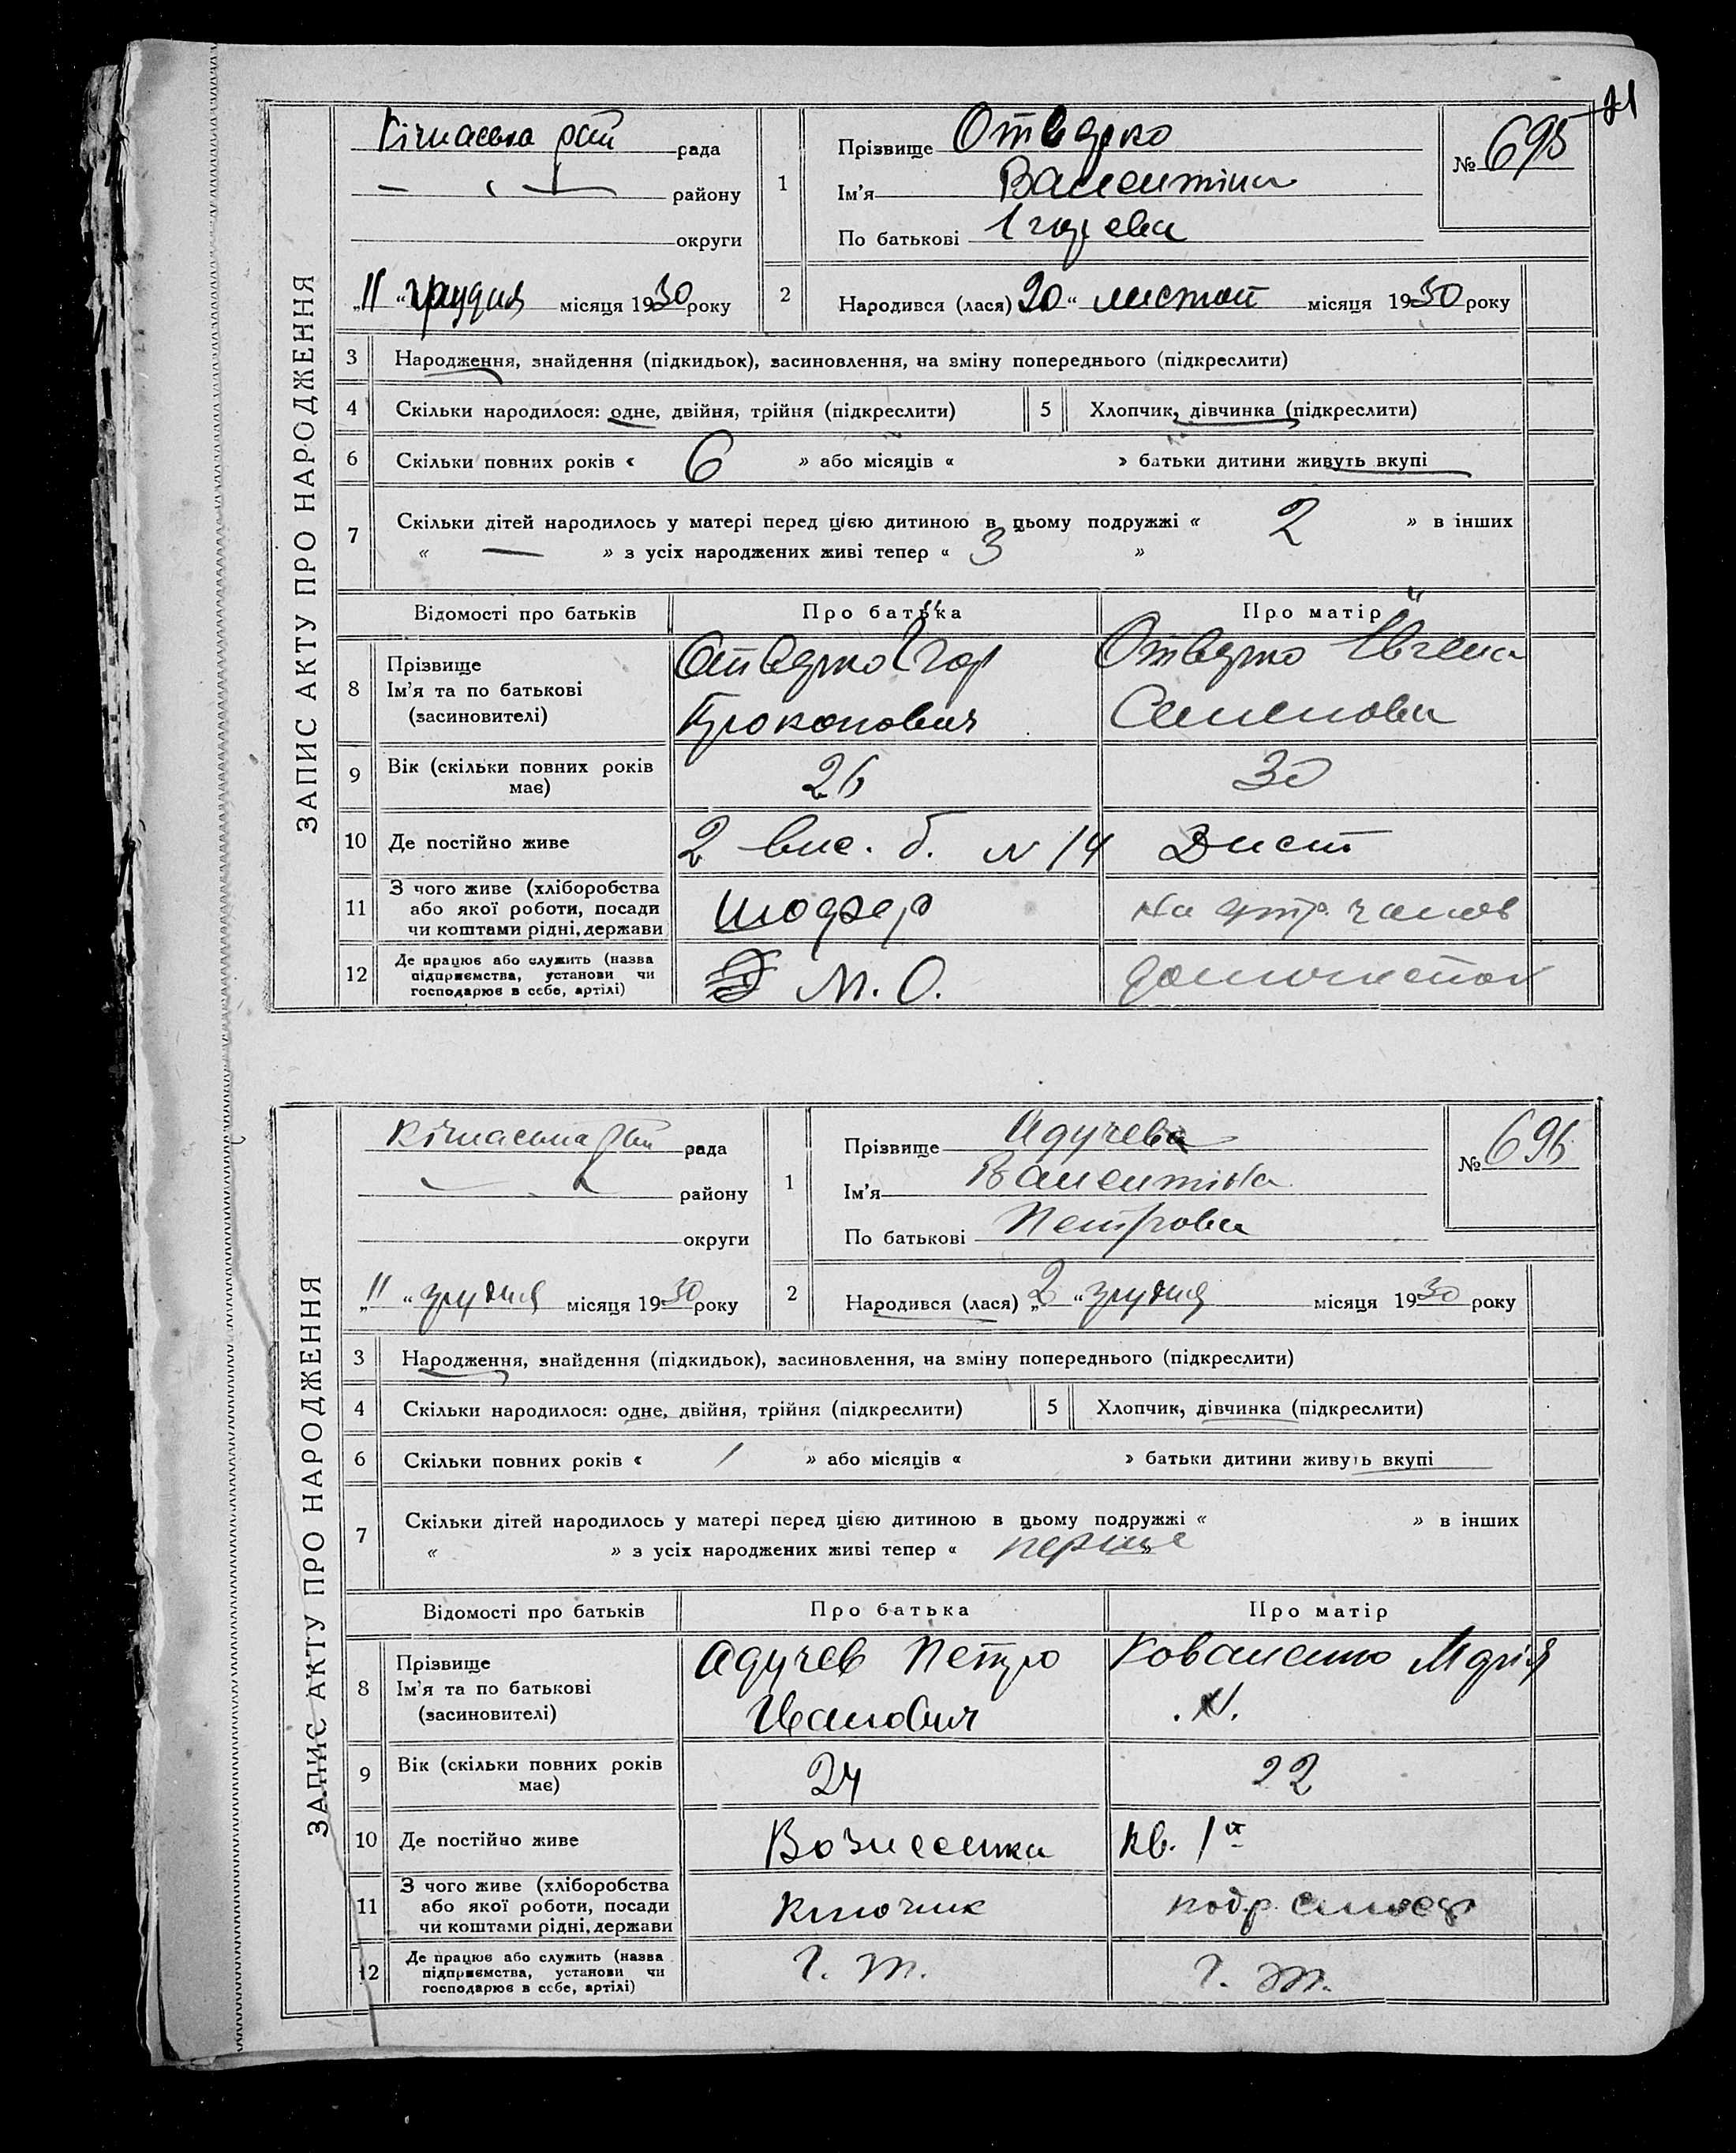 ЗАПИС АКТУ ПРО НАРОДЖЕННЯ
Кічкаська рада
району
округи
„11“ грудня місяця 1930 року
1 Прізвище Отведько
Ім'я Валентина
По батькові Ігорева
№ 695
2 Народився (лася) 20 “ листоп місяця 1930 року
3 Народження, знайдення (підкидьок), засиновлення, на зміну попереднього (підкреслити)
4 Скільки народилося: одне, двійня, трійня (підкреслити) 5 Хлопчик, дівчинка (підкреслити)
6 Скільки повних років « 6 » або місяців « » батьки дитини живуть вкупі
7 Скільки дітей народилось у матері перед цією дитиною в цьому подружжі « 2 » в інших
« — » з усіх народжених живі тепер « 3 »
Відомості про батьків Про батька Про матір
8 Прізвище Ігор Євгена
Ім'я та по батькові Прокопович Семенова
(засиновителі)
9 Вік (скільки повних років має) 26 30
10 Де постійно живе 2 вис. б. N 14 Дніст
11 З чого живе (хліборобства або якої роботи, посади чи коштами рідні, держави шофер на утр.
12 Де працює або служить (назва підприємства, установи чи господарює в себе, артілі) М. О.
ЗАПИС АКТУ ПРО НАРОДЖЕННЯ
Кічкаська рада
району
округи
„11“ грудня місяця 1930 року
1 Прізвище Адучева
Ім'я Валентина
По батькові Петрова
№ 696
2 Народився (лася) „2“ грудня місяця 1930 року
3 Народження, знайдення (підкидьок), засиновлення, на зміну попереднього (підкреслити)
4 Скільки народилося: одне, двійня, трійня (підкреслити) 5 Хлопчик, дівчинка (підкреслити)
6 Скільки повних років « 1 » або місяців « » батьки дитини живуть вкупі
7 Скільки дітей народилось у матері перед цією дитиною в цьому подружжі « » в інших
« » з усіх народжених живі тепер « перше
Відомості про батьків Про батька Про матір
8 Прізвище Адучев Петро Коваленко Марія
Ім'я та по батькові Иванович .N.
(засиновителі)
9 Вік (скільки повних років має) 24 22
10 Де постійно живе Вознесенка кв. 1
11 З чого живе (хліборобства або якої роботи, посади чи коштами рідні, держави
12 Де працює або служить (назва підприємства, установи чи господарює в себе, артілі) Г. Т. Г. Т.